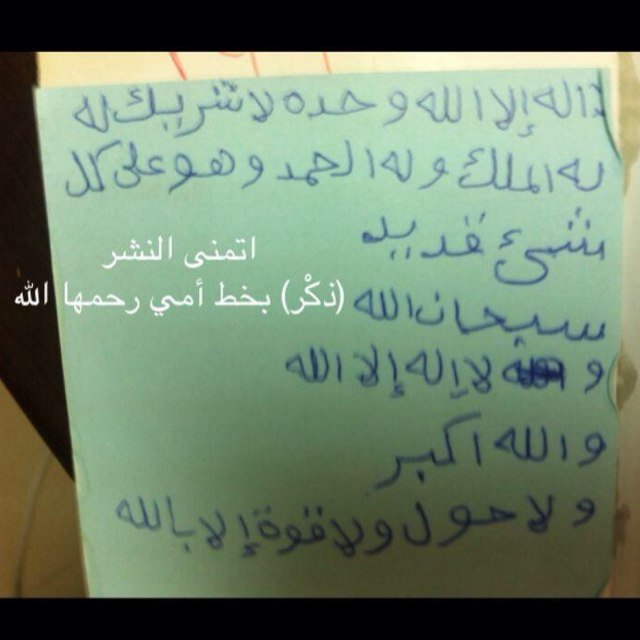 لا اله إلا الله وحده لا شريك له
له الملك وله الحمد وهو على كل
شيئ قدير
اتمنى النشر
سبحان الله
(ذكْر) بخط أمي رحمها الله
و لا إله إلا الله
والله اكبر
ولا حول ولا قوة إلا بالله